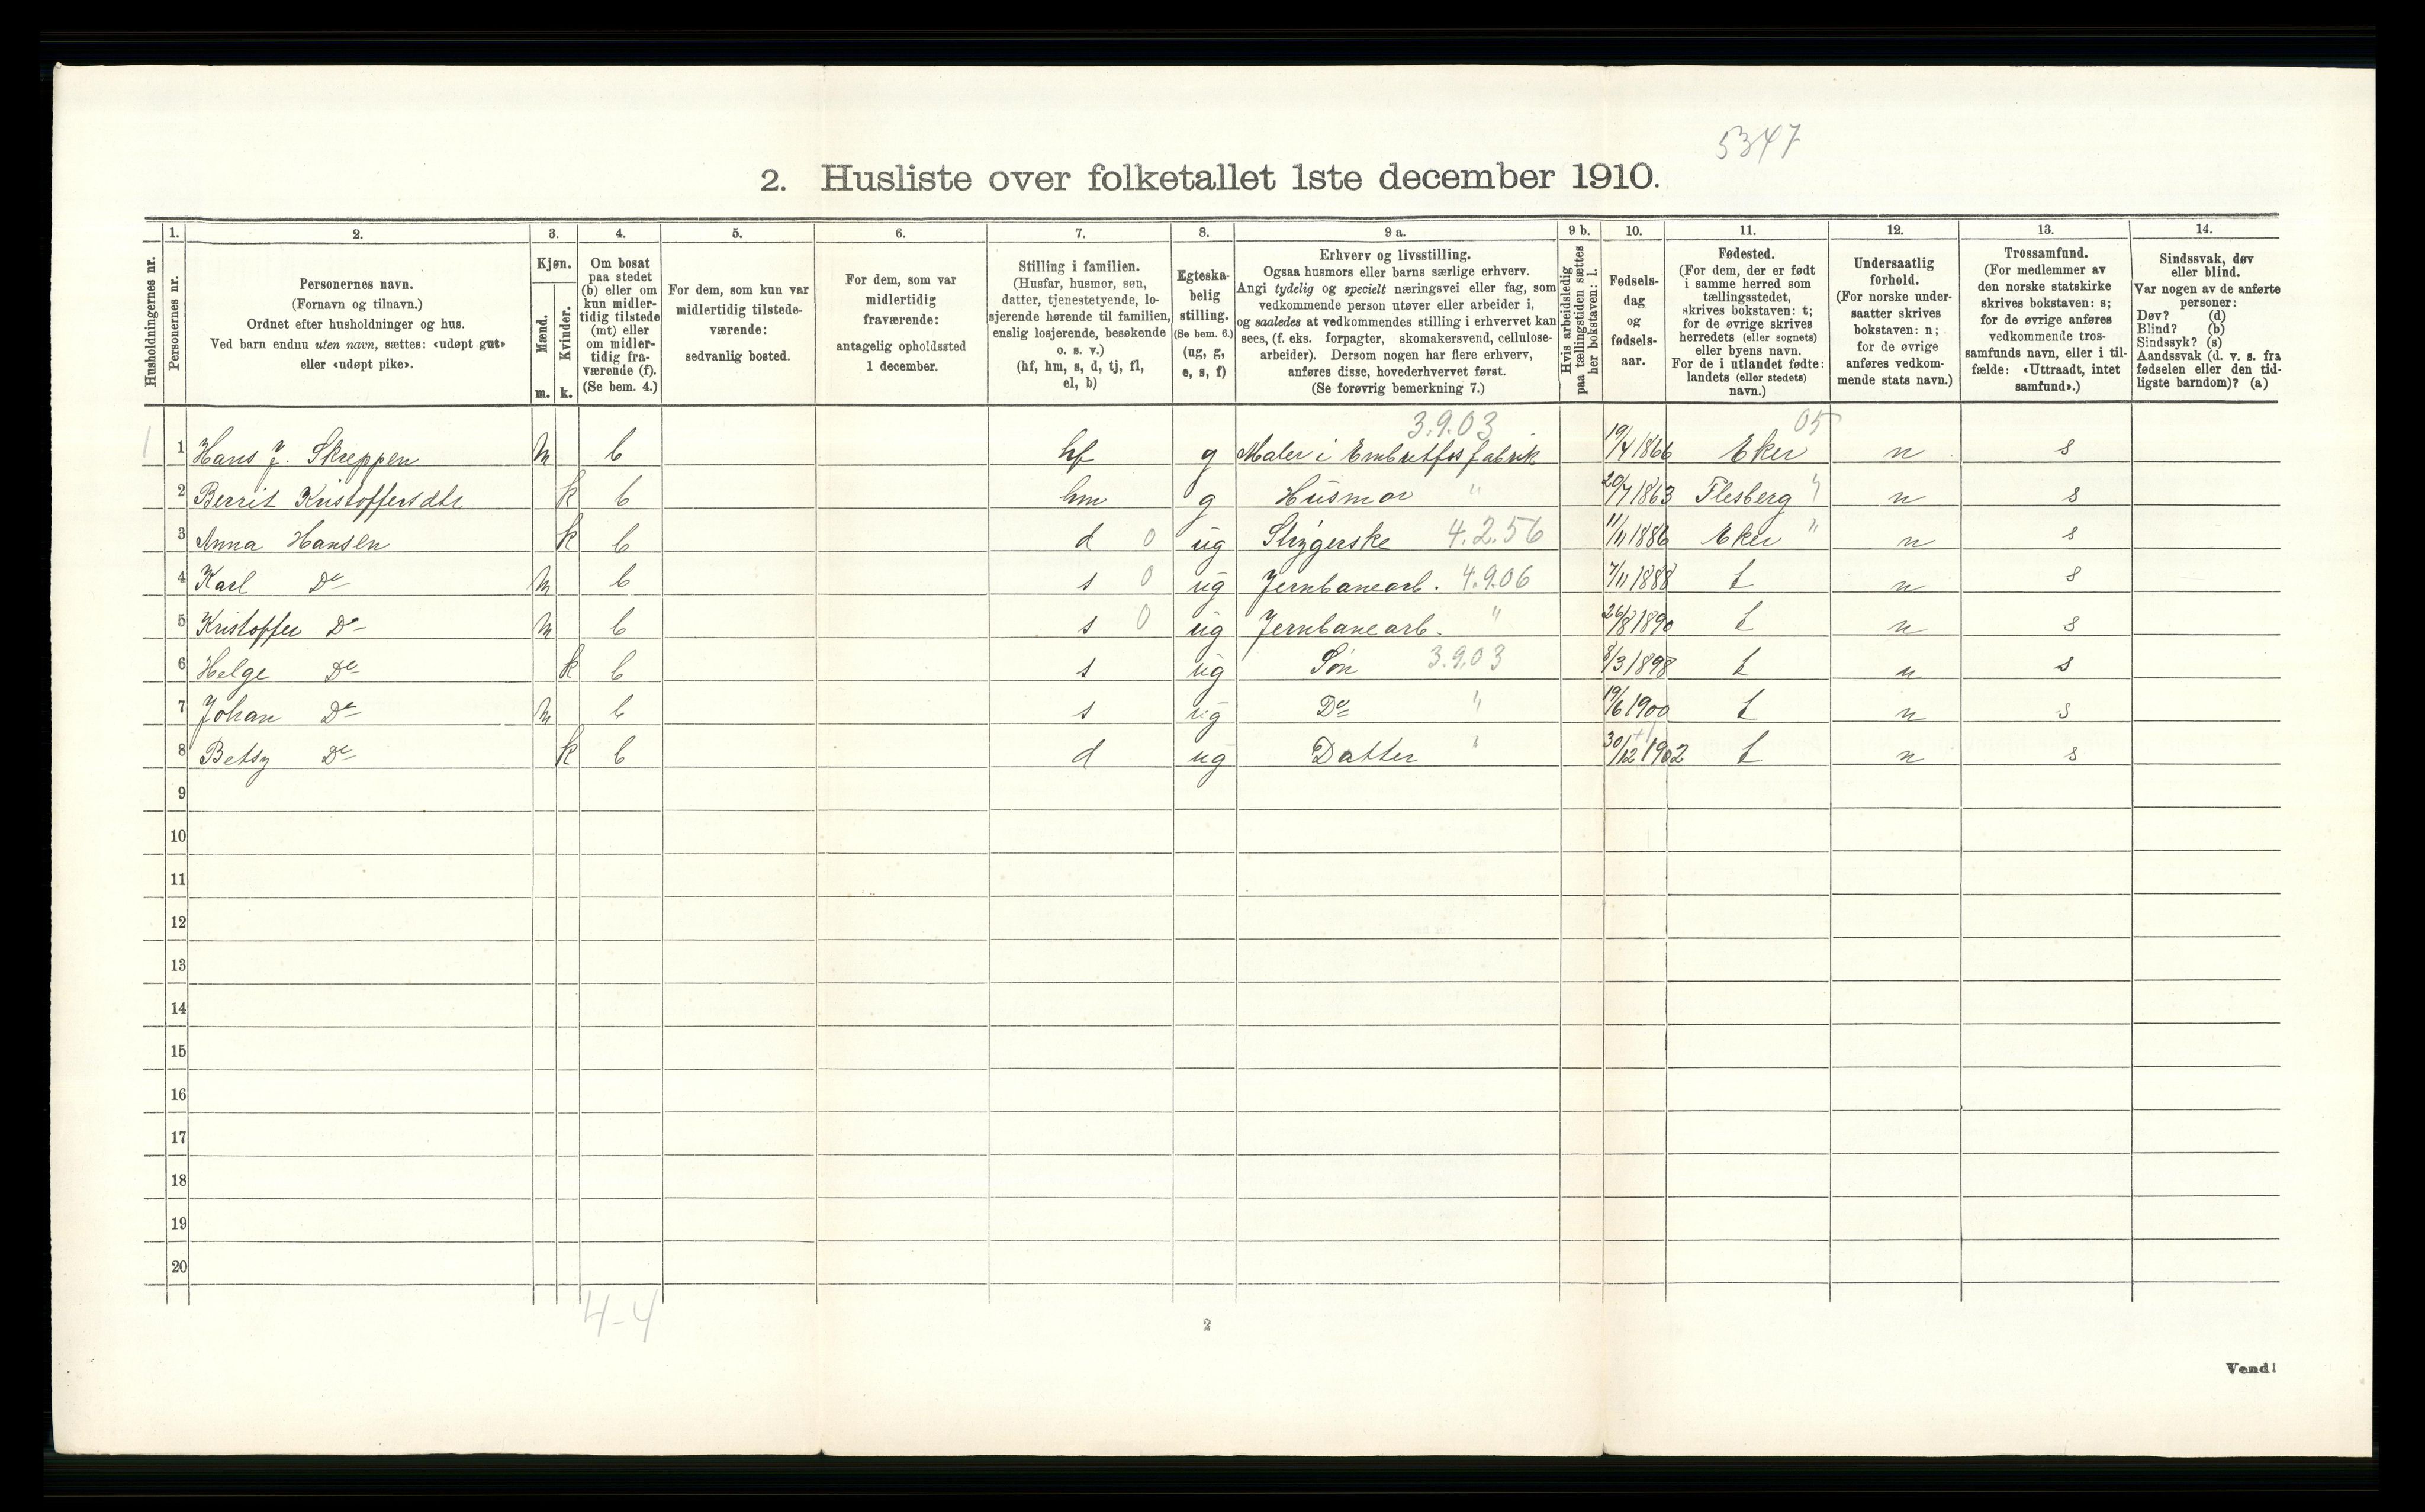 5347
2. Husliste over folketallet 1ste december 1910.
Husholdningernes nr.
1.
Personernes nr.
2.
Personernes navn.
(Fornavn og tilnavn.)
Ordnet efter husholdninger og hus.
Ved barn endnu uten navn, sættes: «udøpt gut»
eller «udøpt pike».
3.
Kjøn.
Mænd.
m.
Kvinder.
k.
4.
Om bosat
paa stedet
(b) eller om
kun midler-
tidig tilstede
(mt) eller
om midler-
tidig fra-
værende (f).
(Se bem. 4.)
5.
For dem, som kun var
midlertidig tilstede-
værende:
sedvanlig bosted.
6.
For dem, som var
midlertidig
fraværende:
antagelig opholdssted
1 december.
7.
Stilling i familien.
(Husfar, husmor, søn,
datter, tjenestetyende, lo-
sjerende hørende til familien,
enslig losjerende, besøkende
o. s. v.)
(hf, hm, s, d, tj, fl,
el, b)
8.
Egteska-
belig
stilling.
(Se bem. 6.)
(ug, g,
e, s, f)
9 a.
Erhverv og livsstilling.
Ogsaa husmors eller barns særlige erhverv.
Angi tydelig og specielt næringsvei eller fag, som
vedkommende person utøver eller arbeider i,
og saaledes at vedkommendes stilling i erhvervet kan
sees, (f. eks. forpagter, skomakersvend, cellulose-
arbeider). Dersom nogen har flere erhverv,
anføres disse, hovederhvervet først.
(Se forøvrig bemerkning 7.)
9 b.
Hvis arbeidsledig
paa tællingstiden sættes
her bokstaven: l.
10.
Fødsels-
dag
og
fødsels-
aar.
11.
Fødested.
(For dem, der er født
i samme herred som
tællingsstedet,
skrives bokstaven: t;
for de øvrige skrives
herredets (eller sognets)
eller byens navn.
For de i utlandet fødte:
landets (eller stedets)
navn.)
12.
Undersaatlig
forhold.
(For norske under-
saatter skrives
bokstaven: n;
for de øvrige
anføres vedkom-
mende stats navn.)
13.
Trossamfund.
(For medlemmer av
den norske statskirke
skrives bokstaven: s;
for de øvrige anføres
vedkommende tros-
samfunds navn, eller i til-
fælde: «Uttraadt, intet
samfund».)
14.
Sindssvak, døv
eller blind.
Var nogen av de anførte
personer:
Døv? (d)
Blind? (b)
Sindssyk? (s)
Aandssvak (d. v. s. fra
fødselen eller den tid-
ligste barndom)? (a)
3.9.03 05
1 1 Hans J. Skreppen m b hf g Maler i Embretfos fabrik 19/4 1866 Eker n s
2 Berrit Kristoffersdtr k b hm g Husmor " 20/7 1863 Flesberg " n s
3 Anna Hansen k b d 0 ug Strygerske 4.2.56 11/11 1886 Eker " n s
4 Karl Do m b s 0 ug Jernbanearb. 4.9.06 7/11 1888 t n s
5 Kristoffer Do m b s 0 ug Jernbanearb. " 26/8 1890 t n s
6 Helge Do k b s ug Søn 3.9.03 8/3 1898 t n s
7 Johan Do m b s ug Do " 19/6 1900 t n s
8 Betsy Do k b d ug Datter " 30/12 1902 t n s
9
10
11
12
13
14
15
16
17
18
19
20
4-4
2
Vend!